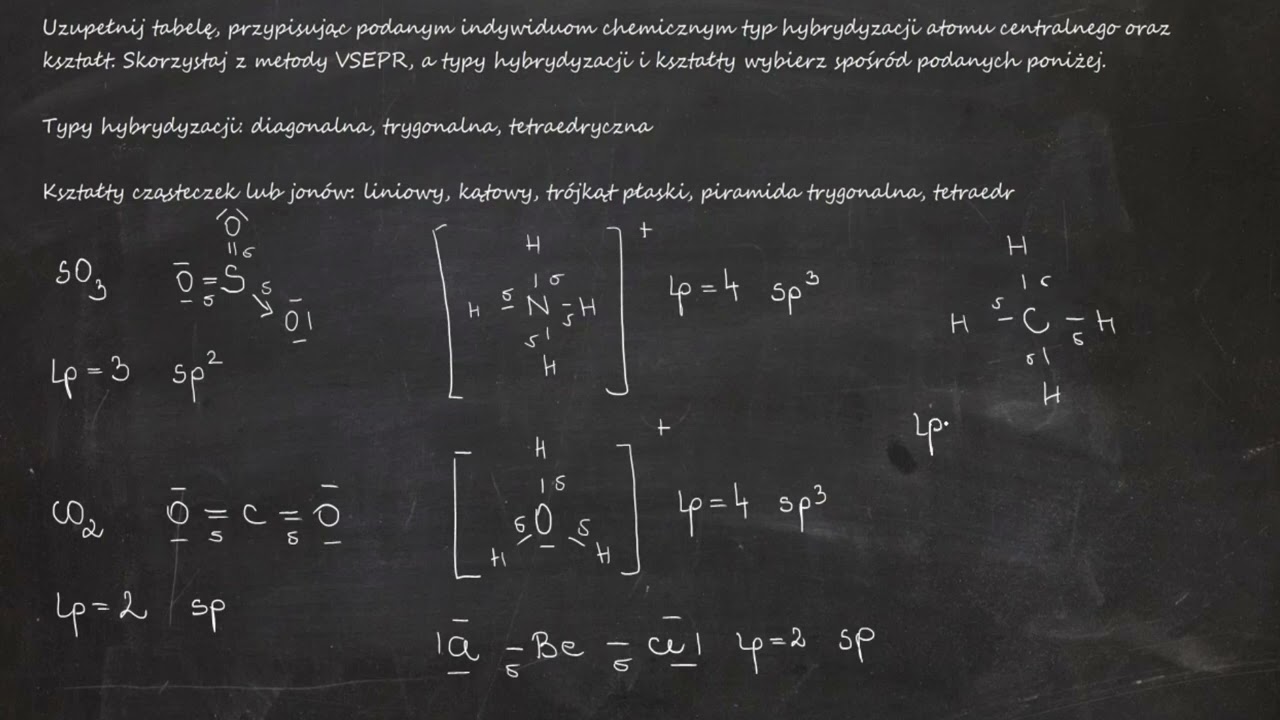 Uzupełnij tabelę, przypisując podanym indywiduom chemicznym typ hybrydyzacji atomu centralnego oraz
kształt. Skorzystaj z metody VSEPR, a typy hybrydyzacji i kształty wybierz spośród podanych poniżej.
Typy hybrydyzacji: diagonalna, trygonalna, tetraedryczna
Kształty cząsteczek lub jonów: liniowy, kątowy, trójkąt płaski, piramida trygonalna, tetraedr
SO₃
O
|| σ
O = S
σ σ
O|
Lp = 3 sp²
[ ]⁺
H
| σ
H σ – N – H σ
σ |
H
Lp = 4 sp³
H
| σ
H σ – C – H σ
σ |
H
Lp
CO₂ O = C = O
σ σ
Lp = 2 sp
[ ]⁺
H
| σ
σ O σ
H H
Lp = 4 sp³
|Cl – Be – Cl| Lp = 2 sp
σ σ